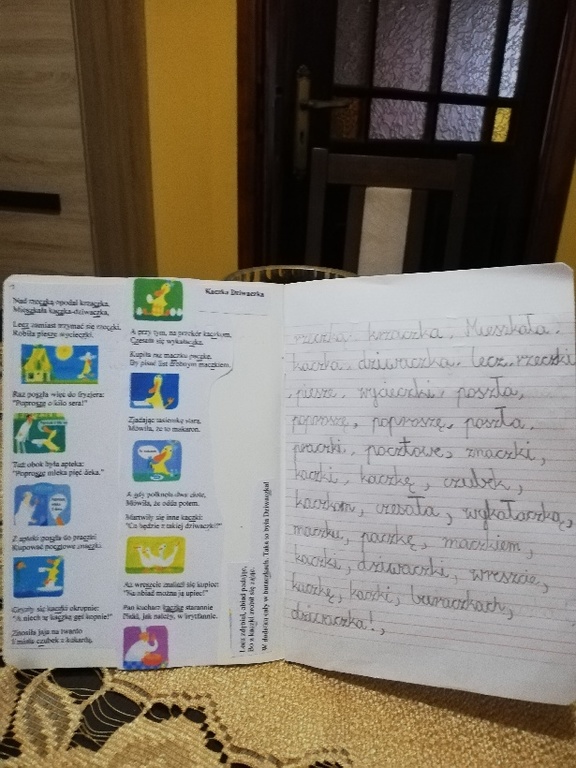 Kaczka Dziwaczka
Nad rzeczką opodal krzaczka,
Mieszkała kaczka-dziwaczka,
Lecz zamiast trzymać się rzeczki,
Robiła piesze wycieczki.
Raz poszła więc do fryzjera:
"Poproszę o kilo sera!"
Tuż obok była apteka:
"Poproszę mleka pięć deka."
Z apteki poszła do praczki
Kupować pocztowe znaczki.
Gryzły się kaczki okropnie:
"A niech tę kaczkę gęś kopnie!"
Znosiła jaja na twardo
I miała czubek z kokardą,
A przy tym, na przekór kaczkom,
Czesała się wykałaczką.
Kupiła raz maczku paczkę,
By pisać list drobnym maczkiem.
Zjadając tasiemkę starą
Mówiła, że to makaron,
A gdy połknęła dwa złote,
Mówiła, że odda potem.
Martwiły się inne kaczki:
"Co będzie z takiej dziwaczki?"
Aż wreszcie znalazł się kupiec:
"Na obiad można ją upiec!"
Pan kucharz kaczkę starannie
Piekł, jak należy, w brytfannie,
Lecz zdębiał, obiad podając,
Bo z kaczki zrobił się zając,
W dodatku cały w buraczkach. Taka to była Dziwaczka!
rzeczka, krzaczka, Mieszkała,
kaczka, dziwaczka, lecz, rzeczki
, piesze, wycieczki, poszła,
poproszę, poproszę, poszła,
praczki, pocztowe, znaczki,
kaczki, kaczkę, czubek,
kaczkom, czesała, wykałaczką,
maczku, paczkę, maczkiem,
kaczki, dziwaczki, wreszcie,
kaczkę, kaczki, buraczkach,
dziwaczka!,